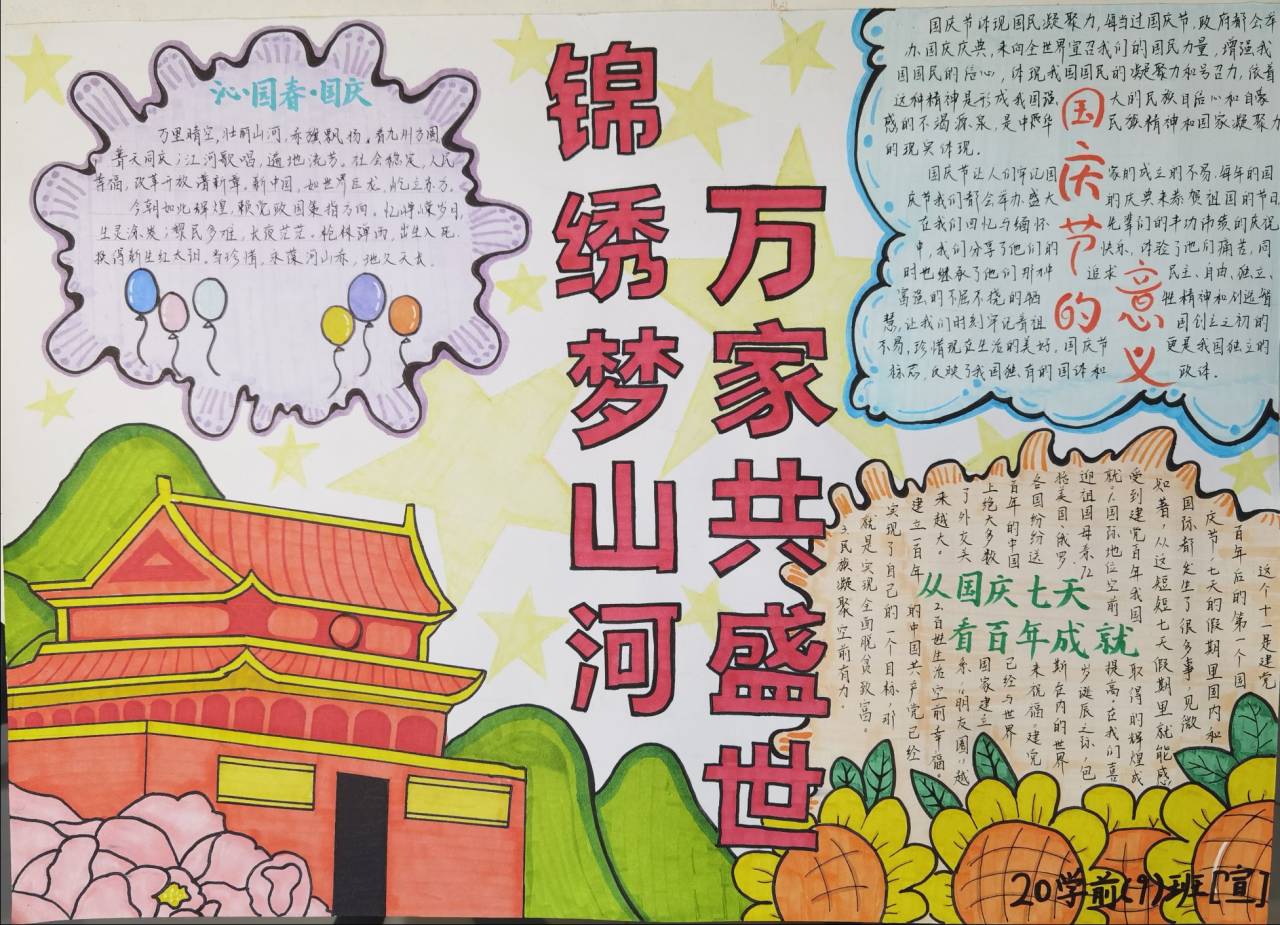 锦绣梦山河
万家共盛世
沁·园春·国庆
万里晴空，壮丽山河，赤旗飘扬。看九州方圆，
普天同庆；江河歌唱，遍地流芳。社会稳定，人民
幸福，改革开放谱新章。新中国，如世界巨龙，屹立东方。
今朝如此辉煌，赖党政国策指方向。忆峥嵘岁月，
生灵涂炭；黎民多难，长夜茫茫。枪林弹雨，出生入死，
换得新生红太阳。当珍惜，永葆河山赤，地久天长。
国庆节的
意义
国庆节体现国民凝聚力，每当过国庆节，政府都会举
办国庆庆典，来向全世界宣召我们的国民力量，增强我
国国民的信心，体现我国国民的凝聚力和号召力，依着
这种精神是形成我国强大的民族自信心和自豪
感的不竭源泉，是中华民族精神和国家凝聚力
的现实体现。
国庆节让人们牢记国家的成立的不易，每年的国
庆节我们都会举办盛大的庆典来恭贺祖国的节日，
在我们回忆与缅怀先辈们的丰功伟绩的庆祝
中，我们分享了他们的快乐，体验了他们痛苦，同
时也继承了他们那种追求民主、自由、独立、
富强的不屈不挠的牺牲精神和创造智
慧，让我们时刻牢记着祖国创立之初的
不易，珍惜现在生活的美好，国庆节更是我国独立的
标志，反映了我国独有的国体和政体。
从国庆七天
看百年成就
这个十一是建党
百年后的第一个国
庆节，七天的假期里国内和
国际都发生了很多事，见微
知著，从这短短七天假期里就能感
受到建党百年我国取得的辉煌成
就。1.国际地位空前提高。在我们喜
迎祖国母亲72岁诞辰之际，包
括美国、俄罗斯在内的世界
各国纷纷送来祝福。建党
百年的中国已经与世界
上绝大多数国家建立
了外交关系，“朋友圈”越
来越大。2.百姓生活空前幸福。
建立一百年的中国共产党已经
实现了自己的一个目标，那
就是实现全面脱贫致富。
3.民族凝聚空前有力。
20学前(9)班[宣]